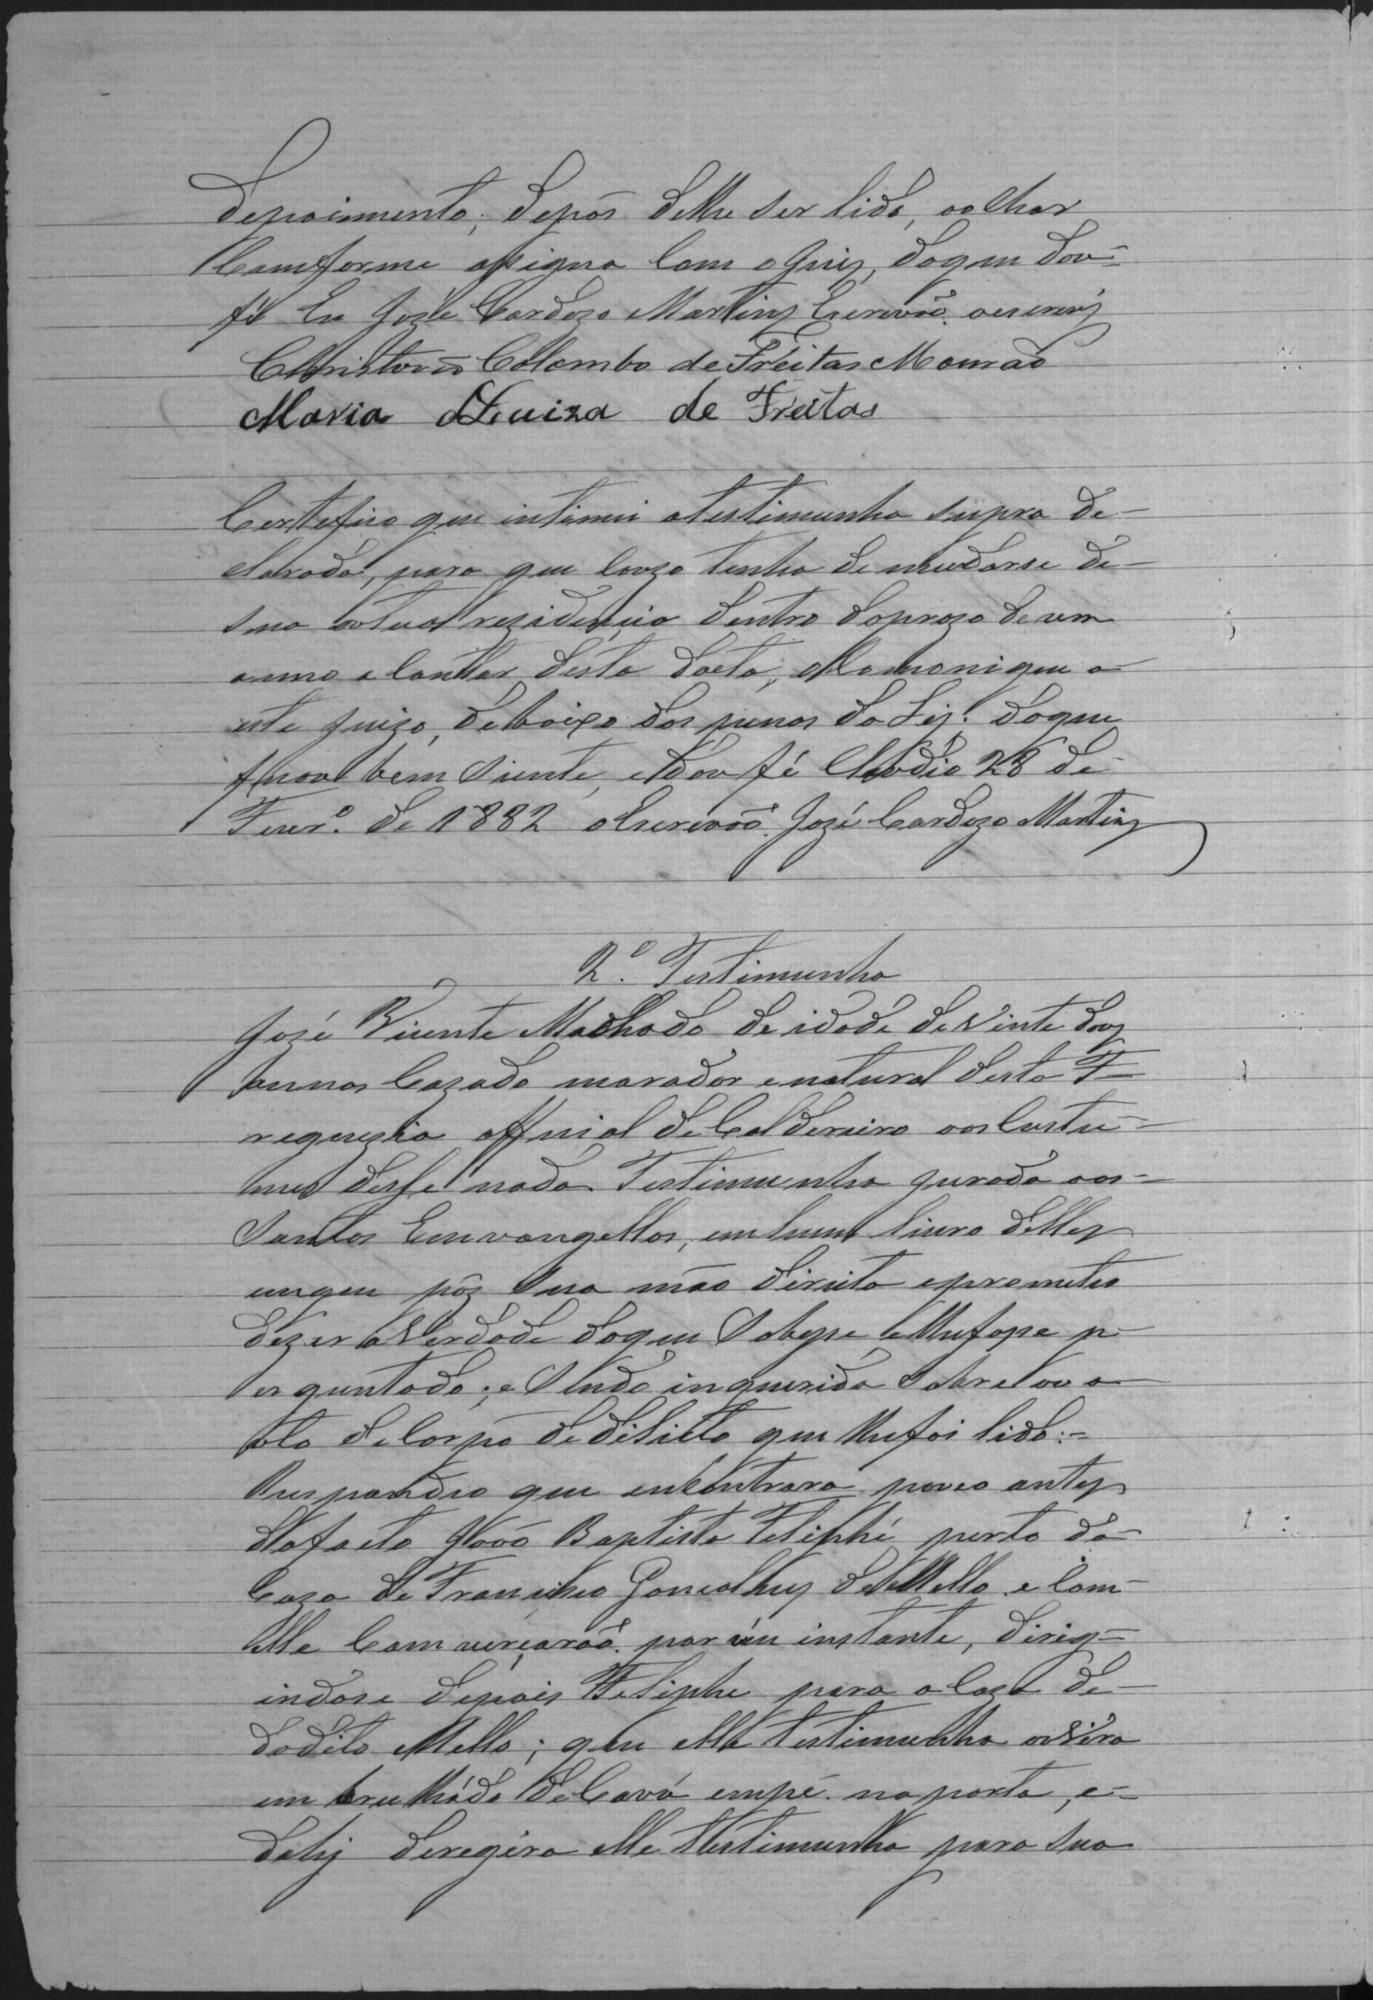 depoimento; depois delhe ser lido, o achar
Comforme assigna Com o Juiz, doque dou-
fé Eu José Cardozo Martins Escrivaõ oescrevi
Christovaõ Colombo de Freitas Mouraõ
Maria Luiza de Freitas
Certefico que intimei atestimunha supra de-
clarada, para que Cauzo tenha de mudarse de-
sua actual rezidencia dentro do prazo de um
anno a Contar desta data, o Comonique a
este Juizo, debaixo das penas da Ley. doque
ficou bem siente, edou fé Claudio 28 de
Fever.º de 1882 oEscrivaõ José Cardozo Martins
2.º Testimunha
José Vicente Machado de idade de Vinte dous
annos Cazado morador enatural desta F-
reguezia official de Caldereiro aos Custu-
mes disse nada Testimunha jurada aos-
Santos Emvangelhos, em hum livro delles
emque pôs sua mão direita eprometeo
dizer a Verdade doque Sobesse, e lhefosse p-
erguntado; e Sendo inquerido Sobre o a-
uto deCorpo dedilicto que lhefoi lido:-
Respondeo que encontrara pouco antes
dofacto João Baptista Feliphe perto da-
Caza de Francisco Gonsalves deMello e Com-
elle Comverçaraõ. por um instante, dirig-
indose depois Feliphe para a Caza de-
dodito Mello; que elle testimunha o Vira
em brulhado deCavá empé. na porta, e-
daly deregira elle testimunha para Sua